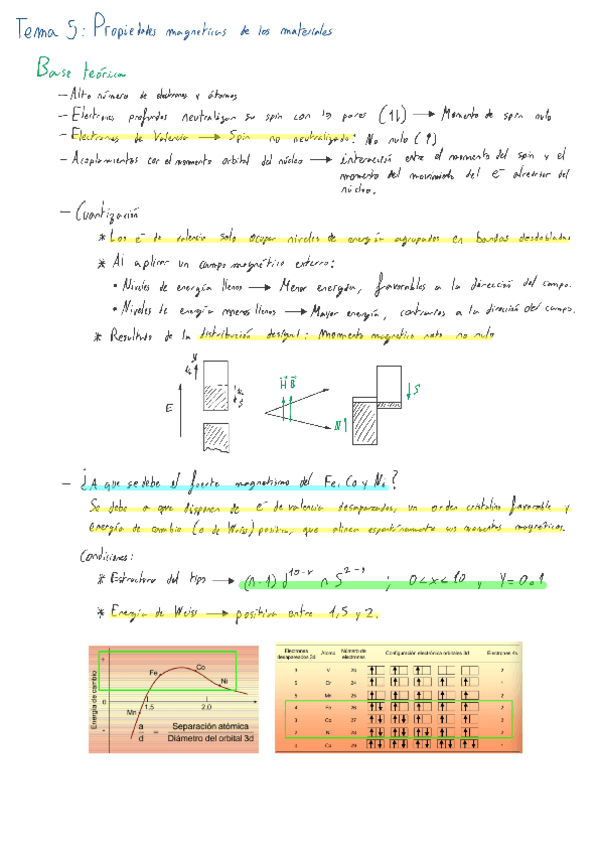 Tema 5: Propiedades magneticas de los materiales
Base teórica
– Alto número de electrones y átomos
– Electrones profundos neutralizan su spin con los pares (↑↓) → Momento de spin nulo
– Electrones de Valencia → Spin no neutralizado: No nulo (↑)
– Acoplamientos con el momento orbital del núcleo → interacción entre el momento del spin y el
momento del movimiento del e⁻ alrededor del
núcleo.
– Cuantización
* Los e⁻ de valencia solo ocupan niveles de energía agrupados en bandas desdobladas
* Al aplicar un campo magnético externo:
• Niveles de energía llenos → Menor energía, favorables a la dirección del campo.
• Niveles de energía menos llenos → Mayor energía, contrarios a la dirección del campo.
* Resultado de la distribución desigual: momento magnético neto no nulo
E
H B
N
S
– ¿A que se debe el fuerte magnetismo del Fe, Co y Ni?
Se debe a que disponen de e⁻ de valencia desapareados, un orden cristalino favorable y
energía de cambio (o de Weiss) positiva, que alinea espontáneamente sus momentos magnéticos.
Condiciones:
* Estructura del tipo → (n-1) d n S ; 0<x<10 y Y=0 o 1
* Energía de Weiss → positiva entre 1,5 y 2.
Energía de cambio
+
0
-
Mn
Fe
Co
Ni
1,5
2,0
a/d = Separación atómica / Diámetro del orbital 3d
Electrones desapareados 3d Átomo Número de electrones Configuración electrónica orbitales 3d Electrones 4s
3 V 23 2
5 Cr 24 1
5 Mn 25 2
4 Fe 26 2
3 Co 27 2
2 Ni 28 2
Cu 29 1